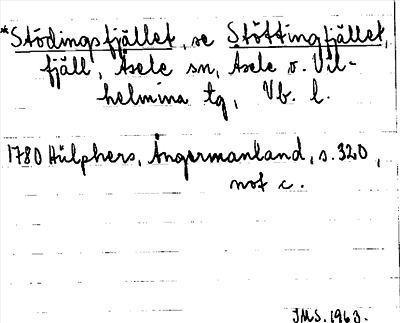 *Stödingsfjället, se Støttingfjället,
fjäll, Åsele sn, Åsele o. Vil-
helmina tg, Vb. l.
1780 Hülphers, Ångermanland, s. 320,
not c.
JMS. 1963.